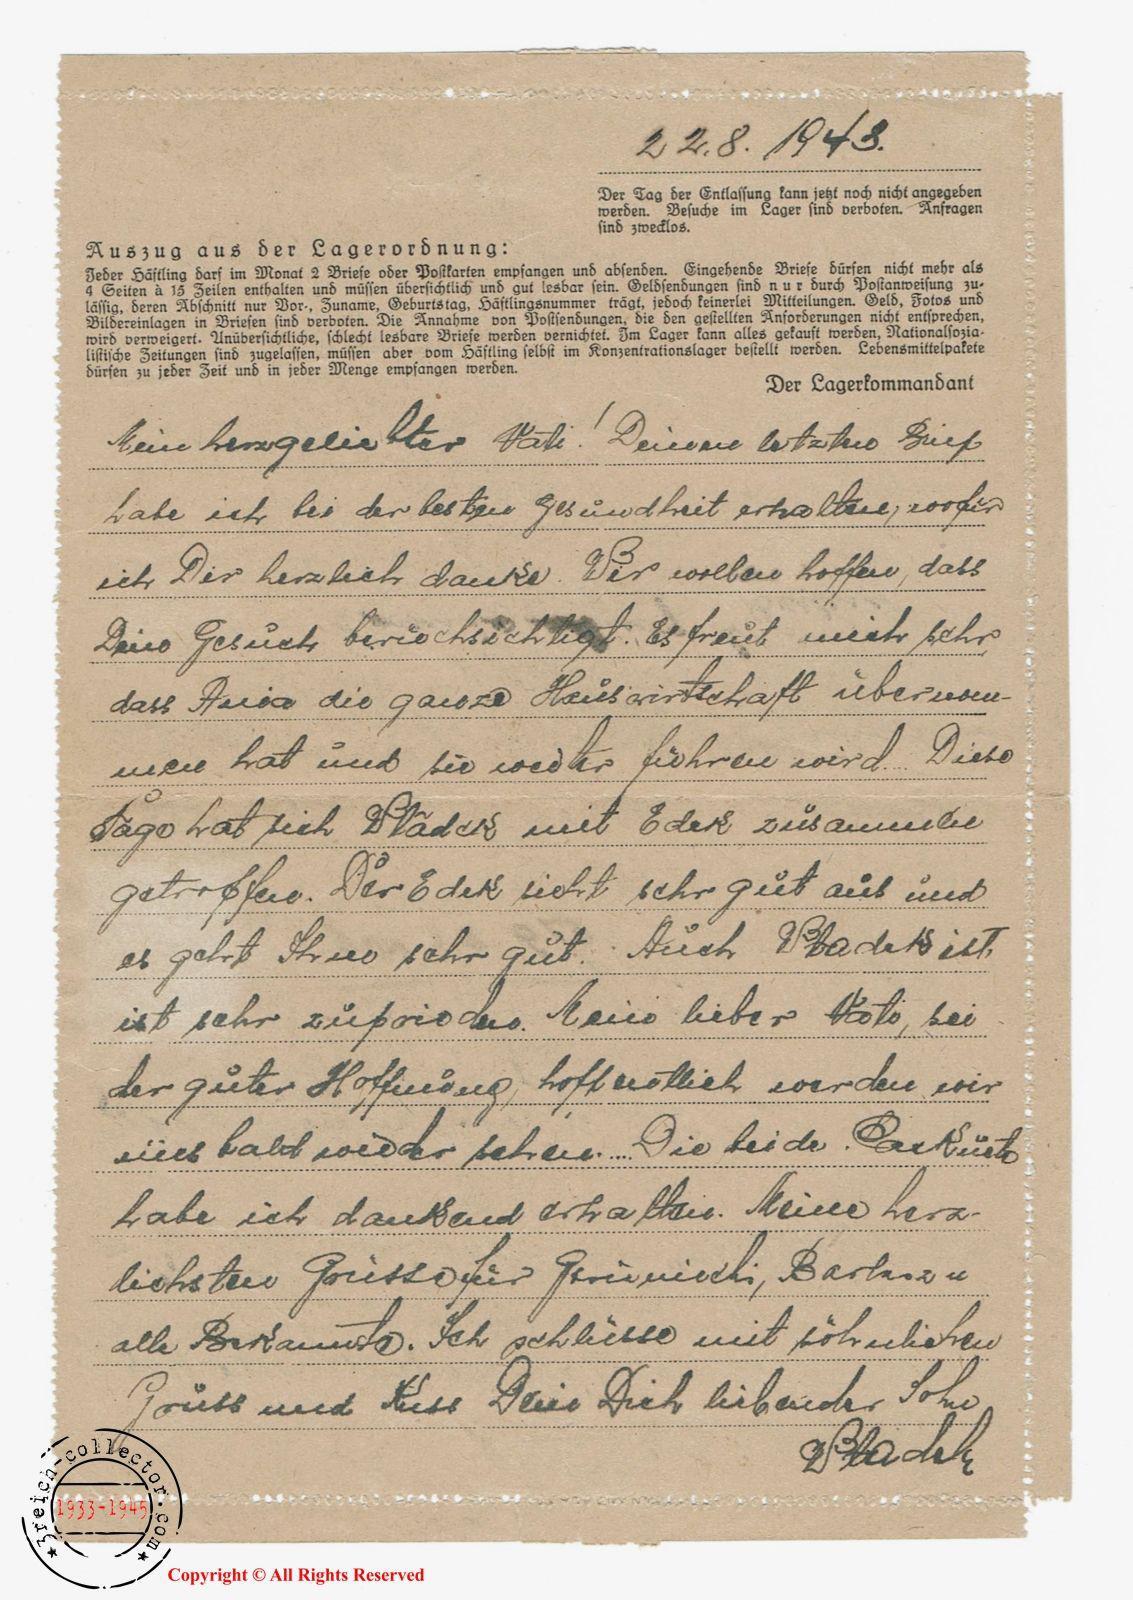 22.8. 1943.
Der Tag der Entlassung kann jetzt noch nicht angegeben
werden. Besuche im Lager sind verboten. Anfragen
sind zwecklos.
Auszug aus der Lagerordnung:
Jeder Häftling darf im Monat 2 Briefe oder Postkarten empfangen und absenden. Eingehende Briefe dürfen nicht mehr als
4 Seiten à 15 Zeilen enthalten und müssen übersichtlich und gut lesbar sein. Geldsendungen sind nur durch Postanweisung zu-
lässig, deren Abschnitt nur Vor-, Zuname, Geburtstag, Häftlingsnummer trägt, jedoch keinerlei Mitteilungen. Geld, Fotos und
Bildereinlagen in Briefen sind verboten. Die Annahme von Postsendungen, die den gestellten Anforderungen nicht entsprechen,
wird verweigert. Unübersichtliche, schlecht lesbare Briefe werden vernichtet. Im Lager kann alles gekauft werden, Nationalsozia-
listische Zeitungen sind zugelassen, müssen aber vom Häftling selbst im Konzentrationslager bestellt werden. Lebensmittelpakete
dürfen zu jeder Zeit und in jeder Menge empfangen werden.
Der Lagerkommandant
Mein herzgeliebter Vati! Deinen letzten Brief
habe ich bei der besten Gesundheit erhalten, wofür
ich Dir herzlich danke. Wir wollen hoffen, dass
Dein Gesuch berücksichtigt. Es freut mich sehr,
dass Ania die ganze Hauswirtschaft übernom-
men hat und sie weiter führen wird. Diese
Tage hat sich Wladek mit Edek zusammen
getroffen. Der Edek sieht sehr gut aus und
es geht Ihm sehr gut. Auch Wladek ist
ist sehr zufrieden. Mein lieber Vati, sei
der guter Hoffnung, hoffentlich werden wir
uns bald wieder sehen. ... Die beide
habe ich dankend erhalten. Meine herz-
lichsten Grüsse für
alle Bekannte. Ich schliesse mit söhnlichen
Gruss und Kuss Dein Dich liebender Sohn
Wladek
3reich-collector.com
1933-1945
Copyright © All Rights Reserved